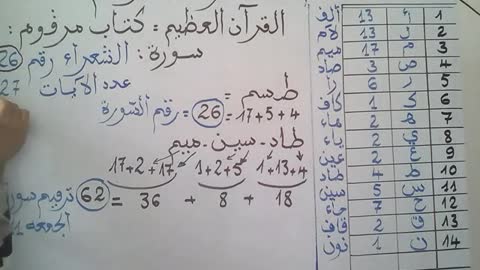 1 ا 13 ألف
2 ل 13 لام
3 م 17 ميم
4 ص 3 صاد
5 ر 6 را
6 ك 1 كاف
7 ه 2 هاء
8 ي 2 ياء
9 ع 2 عين
10 ط 4 طاء
11 س 5 سين
12 ح 7 حاء
13 ق 2 قاف
14 ن 1 نون
القرآن العظيم = كتاب مرقوم :
سورة : الشعراء رقم 26
عدد الآيات 27
طسم =
17+5+4 = 26 = رقم السورة
طاء - سين - ميم
17+2+17 1+2+5 1+13+4
62 = 36 + 8 + 18
ترقيم سورة
الجمعة